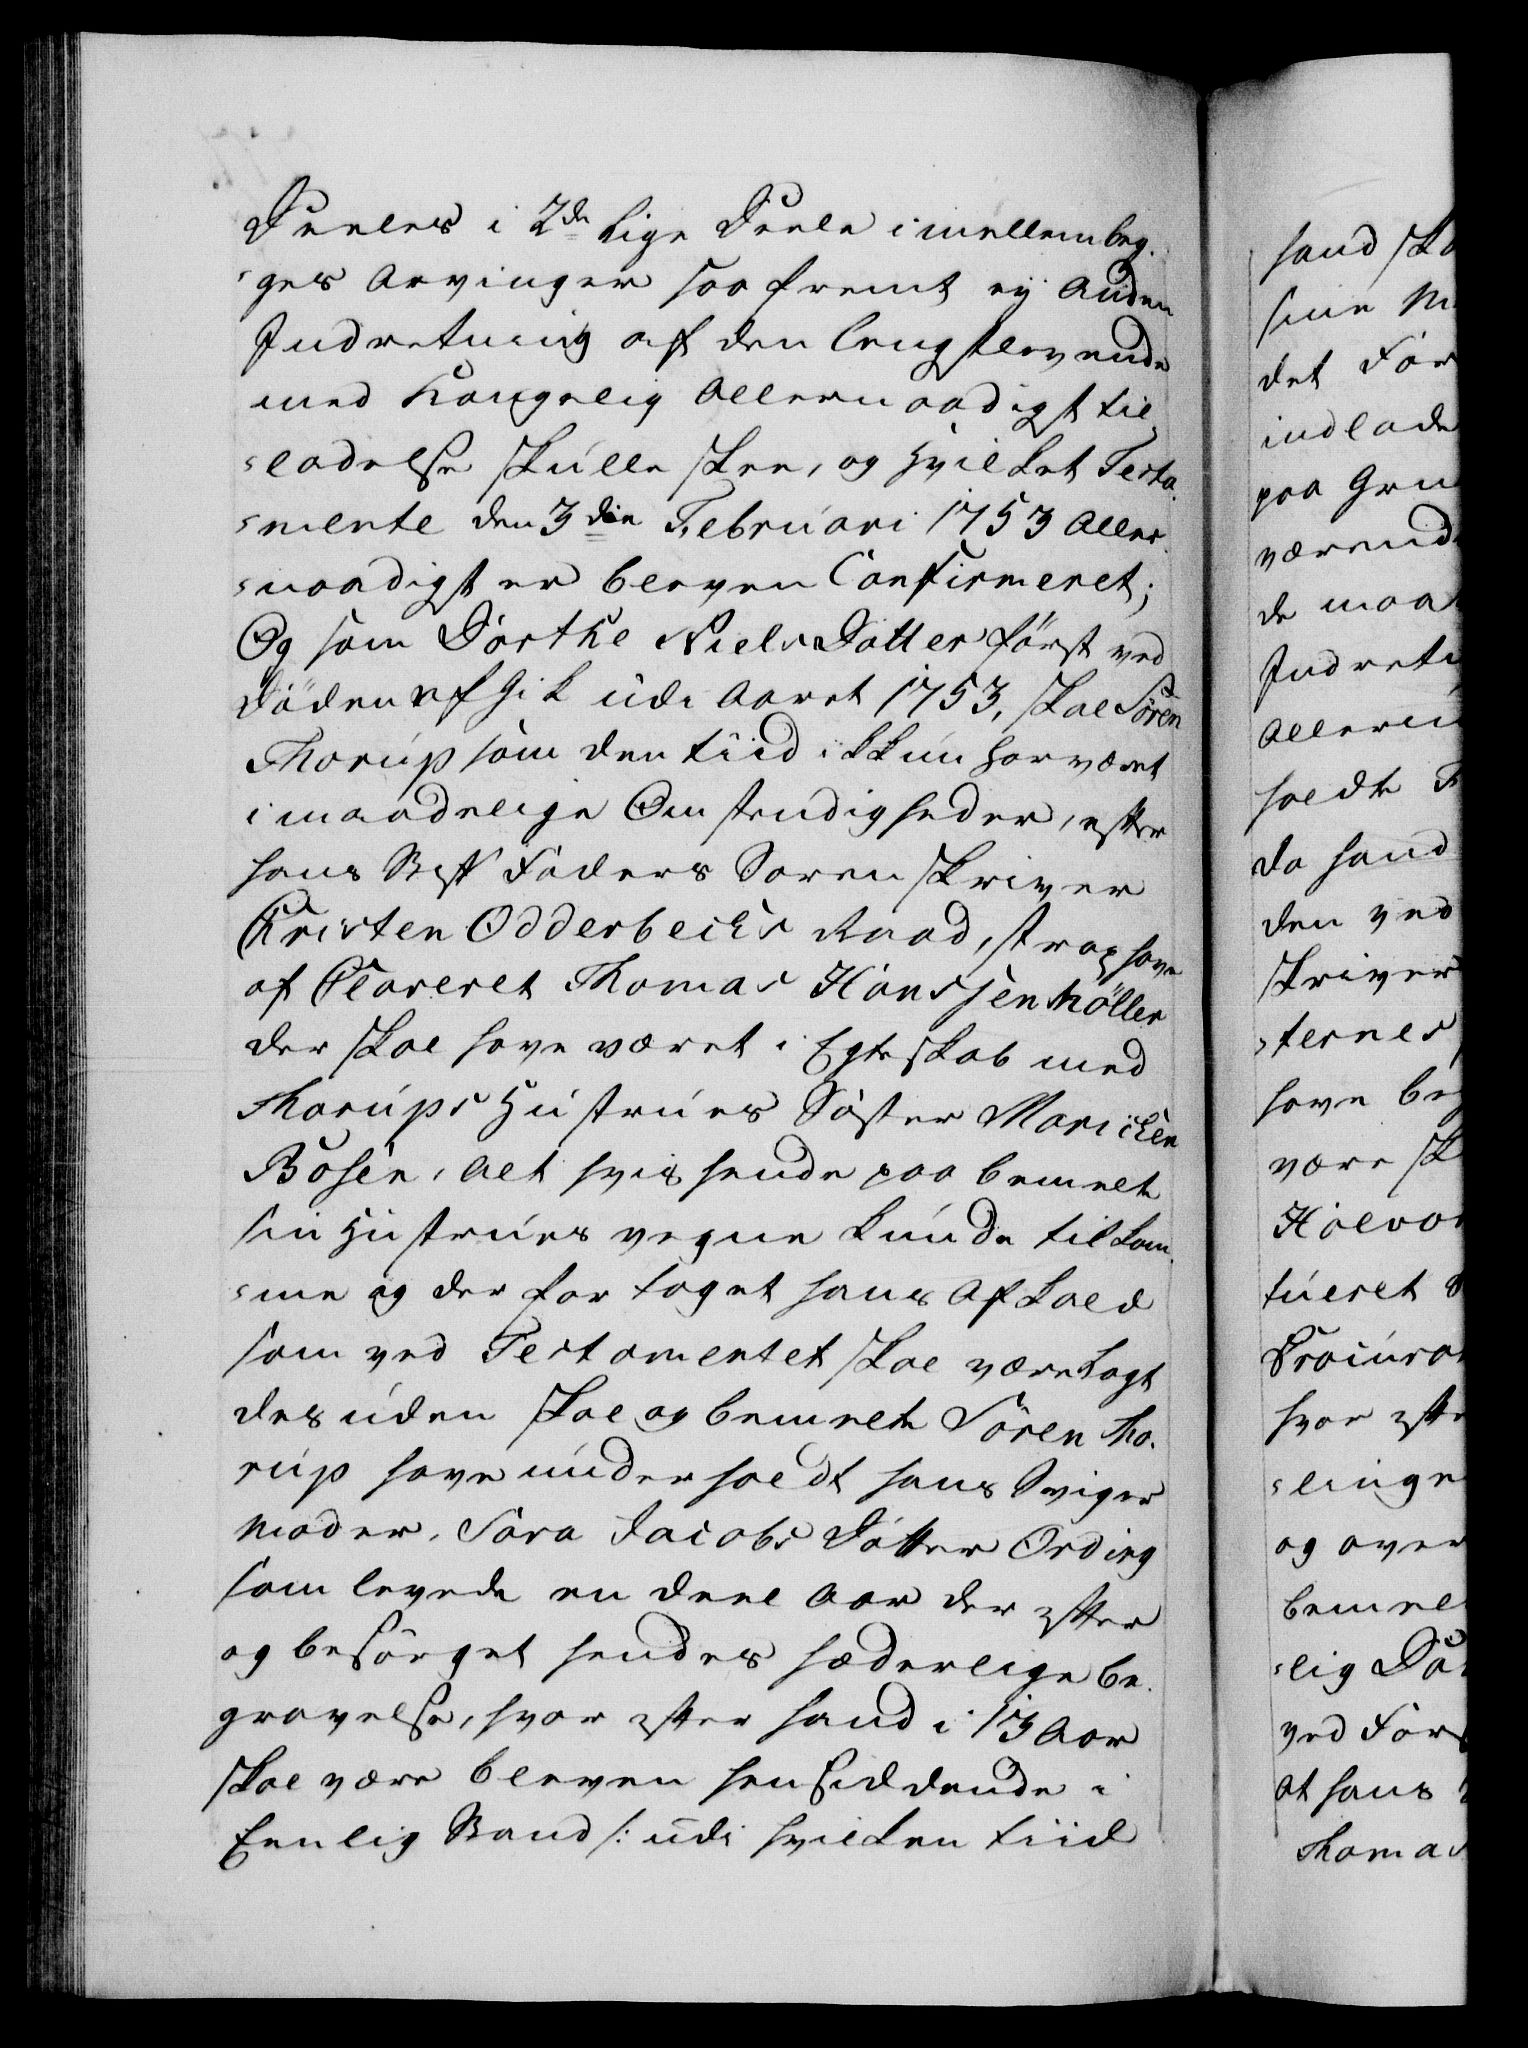 Deeles i 2de lige Deele imellem beg-
-ges Arvinger saa fremt ey Anden
Indretning af den lengstlevende
med Kongelig Allernaadigst til-
-ladelse skulle skee, og hvilket Testa-
-mente den 3die Februari 1753 Aller-
-naadigst er bleven Confirmeret;
Og som Dorthe Niels Datter först ved
Döden afgik udi Aaret 1753, skal Sören
Thorup som den tiid ikkun har været
i maadelige Omstendigheder, efter
hans Bessfaders Soren skriver
Christen Odderbecks Raad, strax have
af Clareret Thomas Hans sen Möller
der skal have været i Egteskab med
Thorups Hustrues Söster Maricken
Bosen, alt hvis hende paa bemelte
sin Hustrues vegne kunde tilkom-
-me og der for taget hans Afkald
som ved Testamentet skal være lagt
des uden skal og bemelte Sören Tho-
rup have underholdt hans Sviger
moder, Sara Jacobs Datter Ording
som levede en deel Aar der efter
og besörget hendes hæderlige be-
gravelse, hvor efter hand i 13 Aar
skal være bleven hensiddende i
Eenlig Stand /: udi hvilken tiid
hand ska
sine M
det For
indlade
paa Gru
værend
de maa
Indret
Allern
holdte
da hand
den ved
skriver
-ternes
have be
være sk
Halvor
tueret
Procura
hvor efte
-linge
og over
bemel
-lig Da
ved For
at hans
Thoma